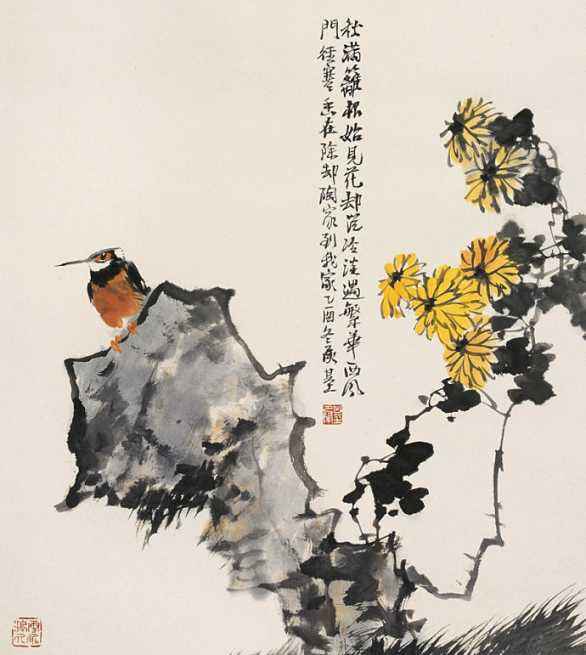 秋滿籬根始見花却從冷淡遇繁華西風
門徑寒香在除却陶家到我家乙酉冬